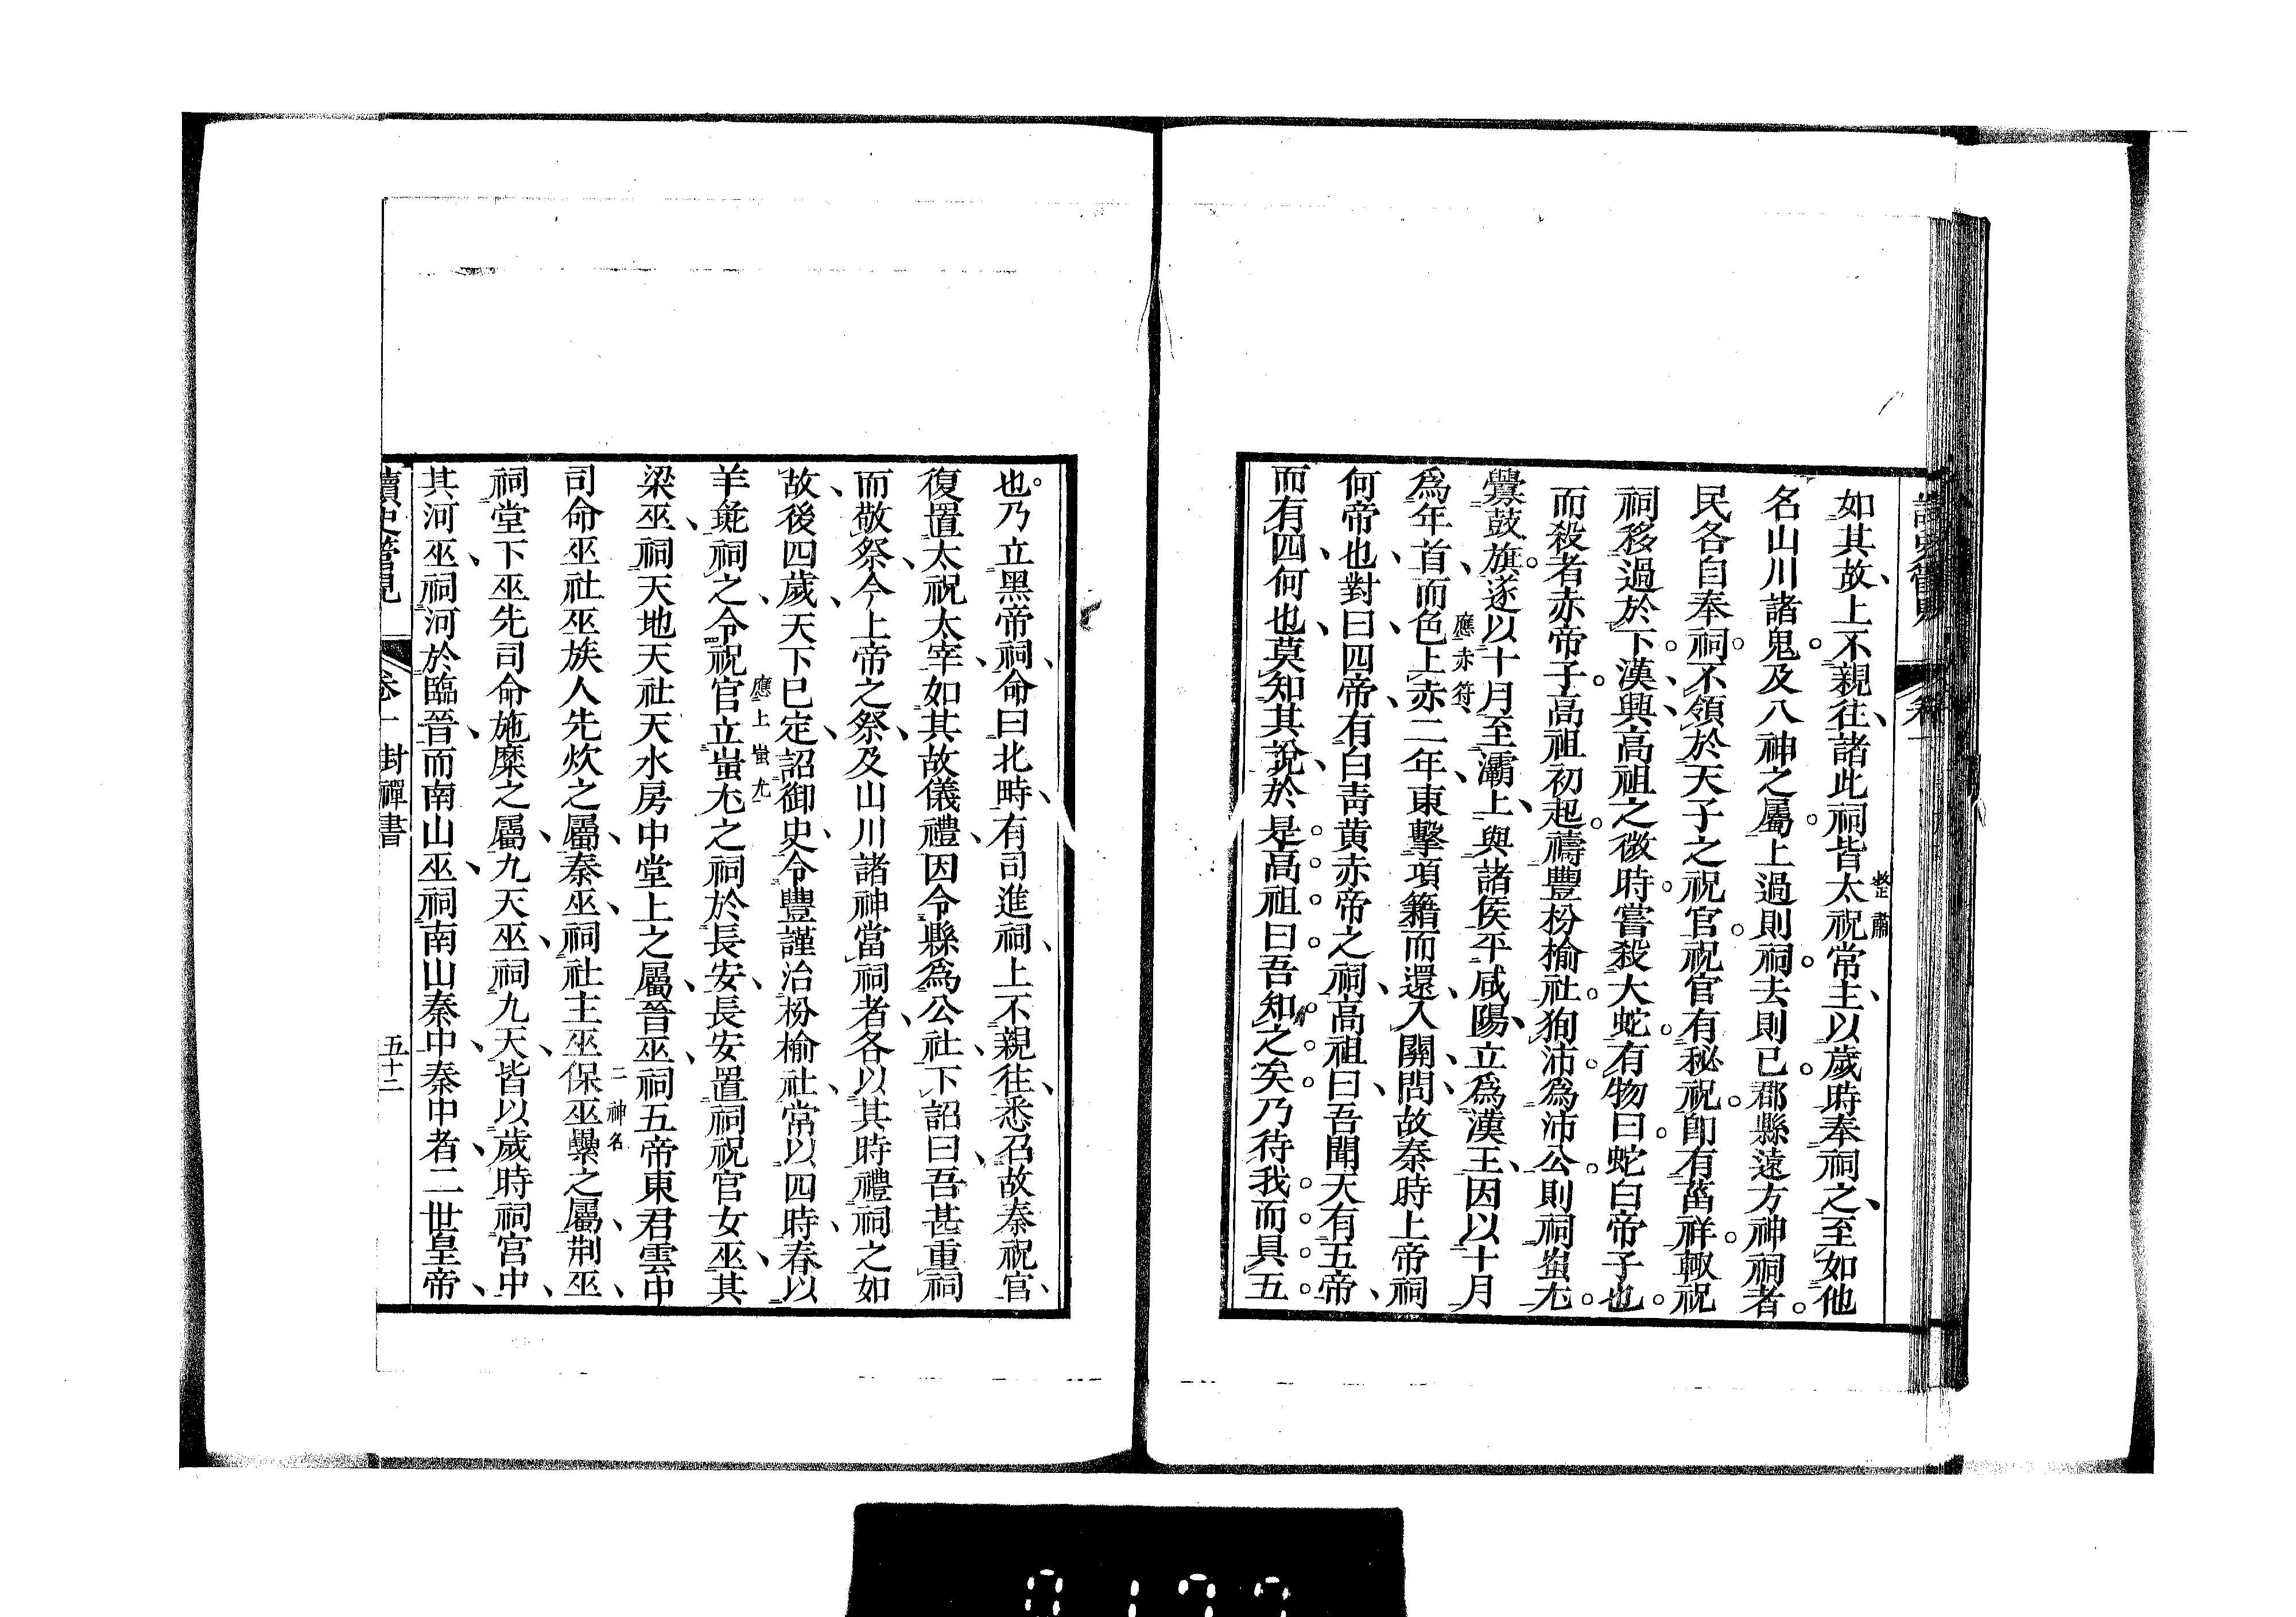 讀史管見 卷一
如其故上不親往諸此祠皆太祝常主以歲時奉祠之至如他
整肅
名山川諸鬼及八神之屬上過則祠去則已郡縣遠方神祠者
民各自奉祠不領於天子之祝官祝官有秘祝卽有菑祥輙祝
祠移過於下漢興高祖之微時嘗殺大蛇有物曰蛇白帝子也
而殺者赤帝子高祖初起禱豐枌榆社狥沛爲沛公則祠蚩尤
釁鼓旗遂以十月至灞上與諸侯平咸陽立爲漢王因以十月
應赤符
爲年首而色上赤二年東擊項籍而還入關問故秦時上帝祠
何帝也對曰四帝有白靑黃赤帝之祠高祖曰吾聞天有五帝
而有四何也莫知其說於是高祖曰吾知之矣乃待我而具五
也乃立黑帝祠命曰北畤有司進祠上不親往悉召故秦祝官
復置太祝太宰如其故儀禮因令縣爲公社下詔曰吾甚重祠
而敬祭今上帝之祭及山川諸神當祠者各以其時禮祠之如
故後四歲天下已定詔御史令豐謹治枌榆社常以四時春以
羊彘祠之令祝官立蚩尤之祠於長安長安置祠祝官女巫其
應上蚩尤
梁巫祠天地天社天水房中堂上之屬晉巫祠五帝東君雲中
司命巫社巫族人先炊之屬秦巫祠社主巫保巫纍之屬荆巫
二神名
祠堂下巫先司命施糜之屬九天巫祠九天皆以歲時祠宮中
其河巫祠河於臨晉而南山巫祠南山秦中秦中者二世皇帝
讀史管見 卷一 封禪書 五十二